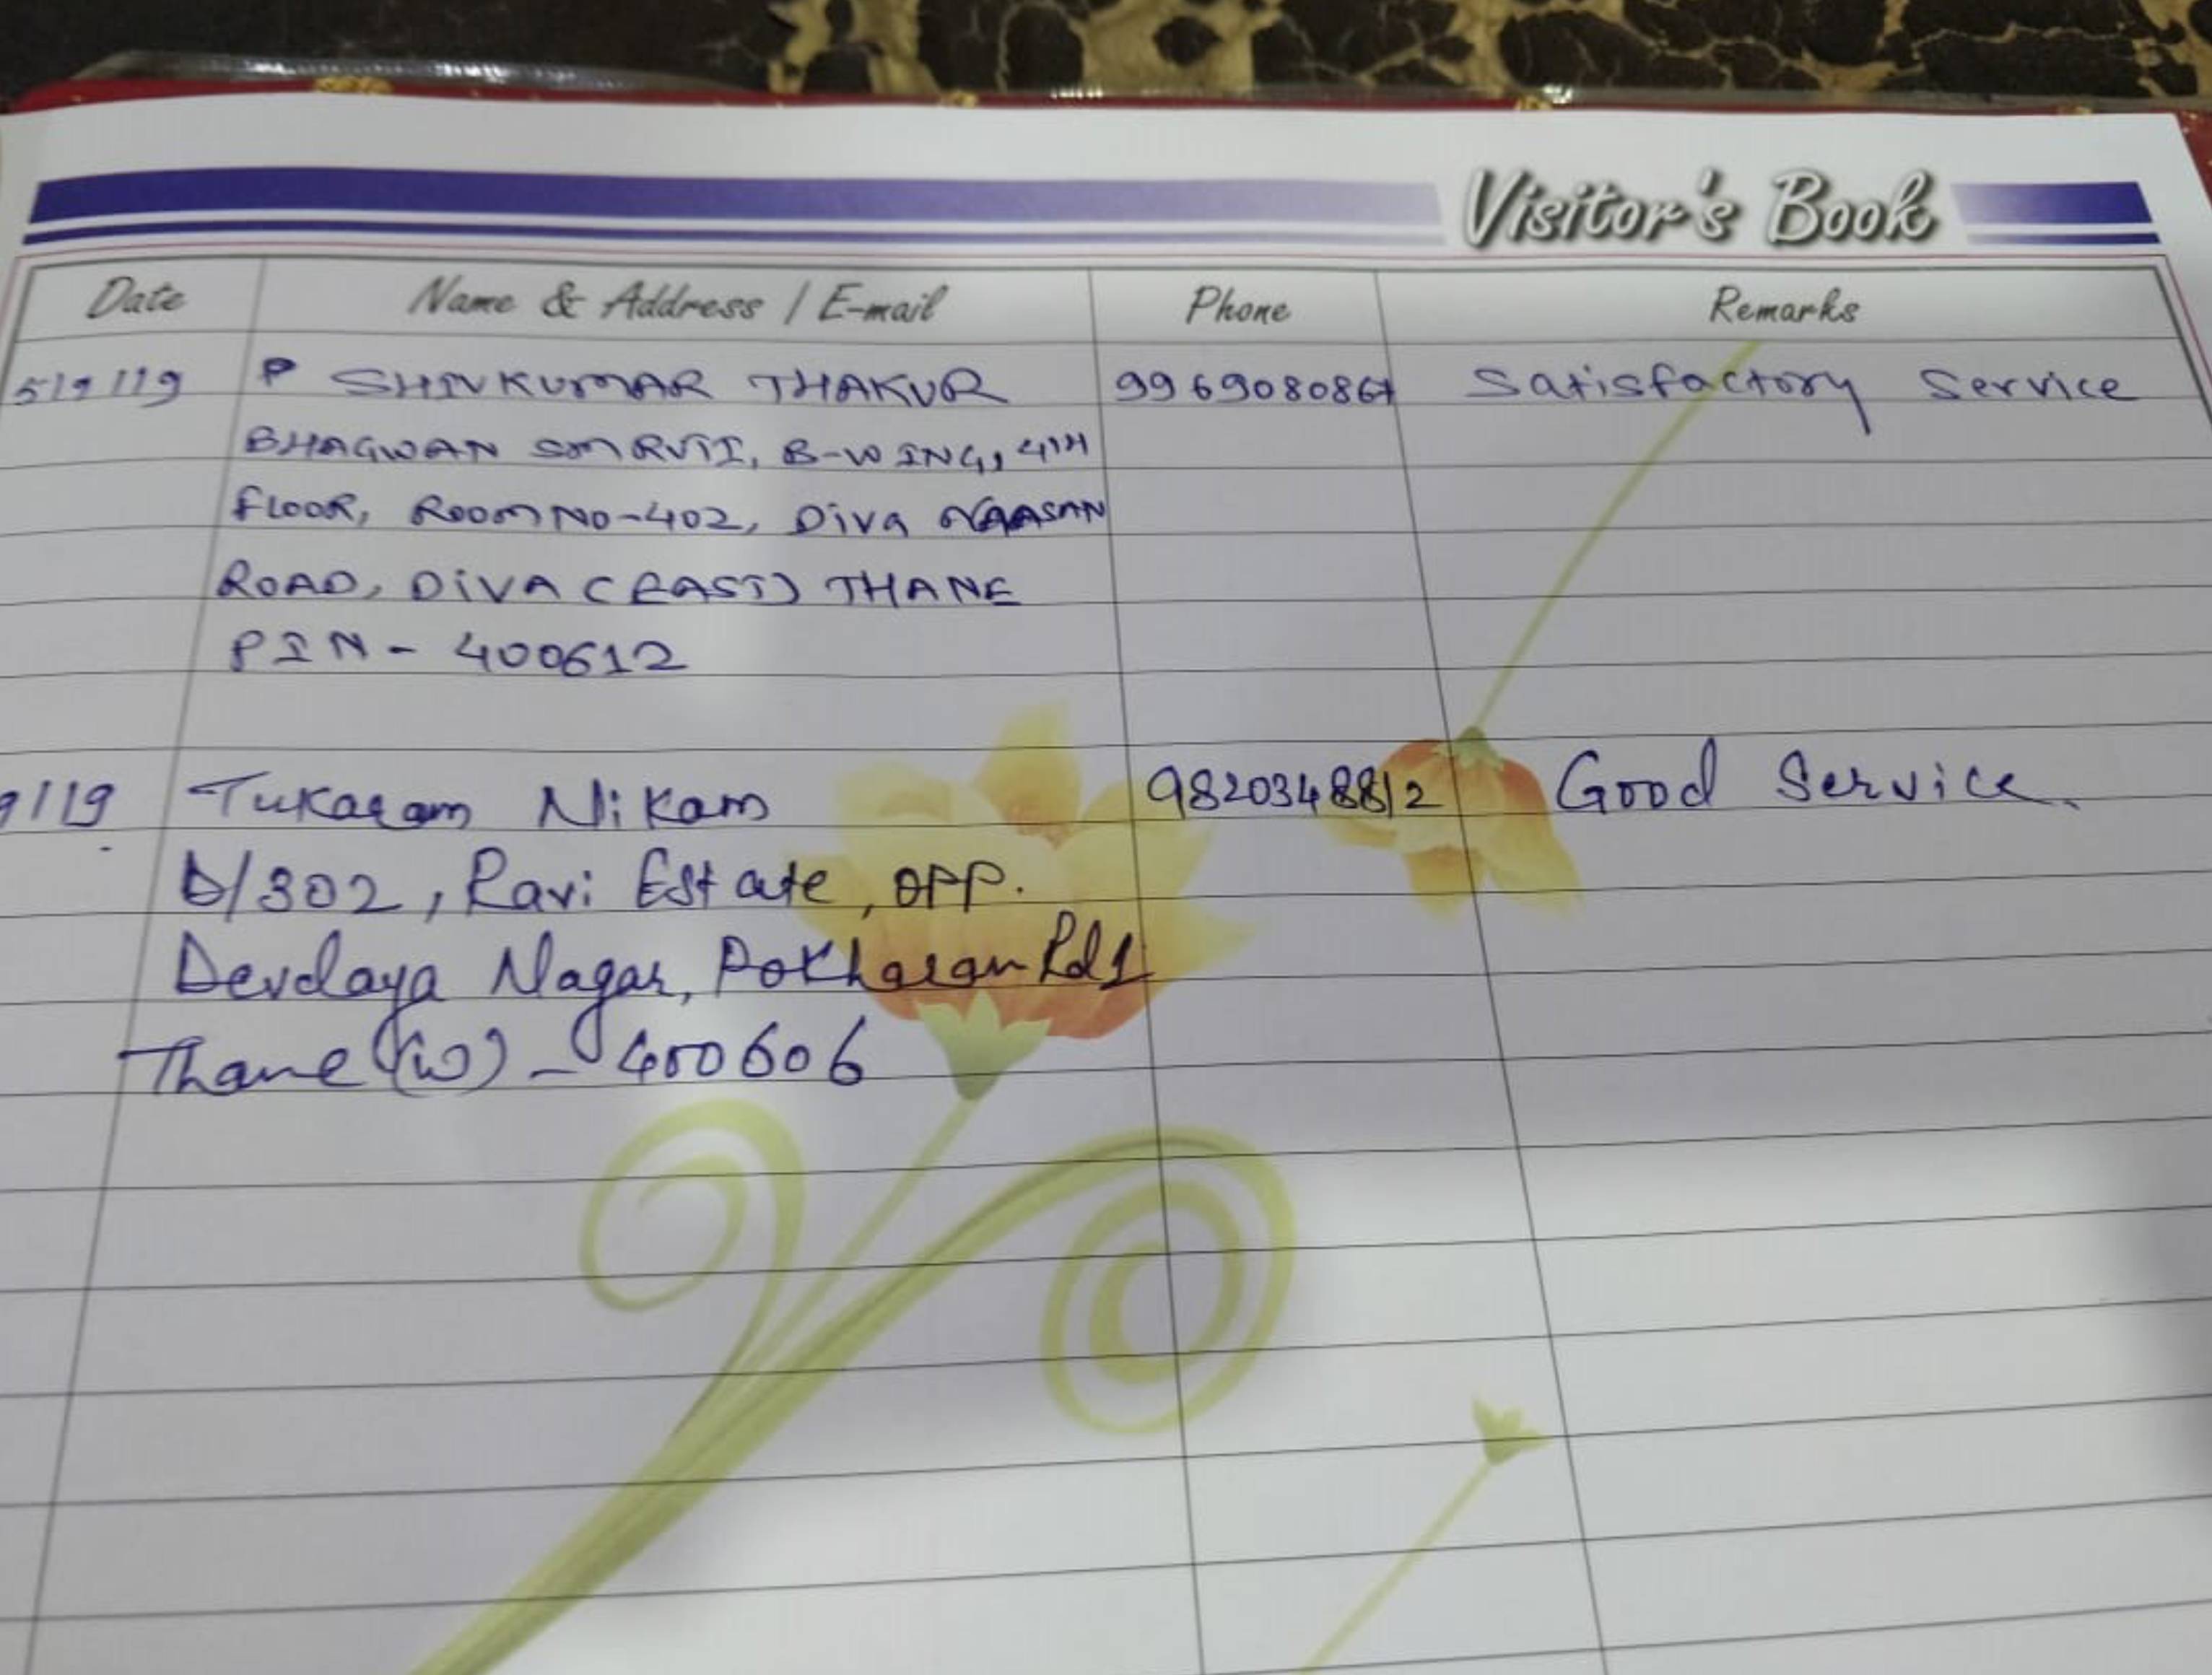 Visitor's Book
Date Name & Address / E-mail Phone Remarks
5/9/19 P SHIVKUMAR THAKUR 9969080867 Satisfactory Service
BHAGWAN SMRUTI, B-WING, 4TH
FLOOR, ROOM NO-402, Diva
ROAD, DIVA (EAST) THANE
PIN - 400612
9/19 Tukaram Nikam 9820348812 Good Service.
D/302, Ravi Estate, OPP.
Devdaya Nagar, Pokharan Rd 1
Thane (w) - 400606